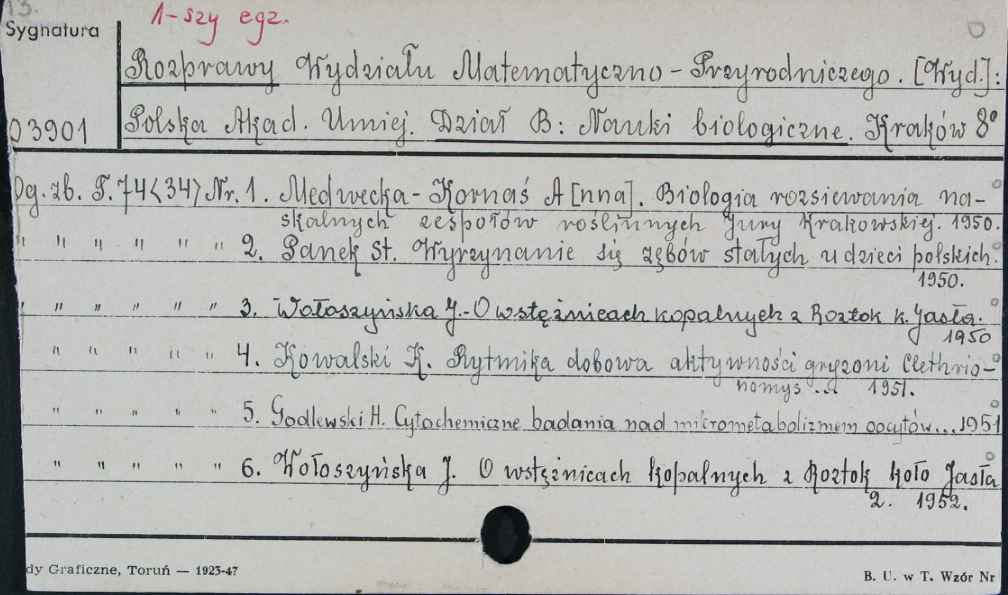 13.
1-szy egz.
Sygnatura
Rozprawy Wydziału Matematyczno-Przyrodniczego. [Wyd.]:
03901 Polska Akad. Umiej. Dział B: Nauki biologiczne. Kraków 8°
Og. zb. T. 74<34> Nr. 1. Medwecka-Kornaś A[nna]. Biologia rozsiewania na-
skalnych zespołów roślinnych Jury Krakowskiej. 1950.
" " " " " " 2. Panek St. Wyrzynanie się zębów stałych u dzieci polskich.
1950.
" " " " " 3. Wołoszyńska J.-O wstężnicach kopalnych z Roztok k. Jasła.
1950
" " " " " 4. Kowalski K. Rytmika dobowa aktywności gryzoni Clethrio-
nomys... 1951.
" " " " " 5. Godlewski H. Cytochemiczne badania nad mikrometabolizmem oocytów... 1951
" " " " " 6. Wołoszyńska J. O wstężnicach kopalnych z Roztok koło Jasła
2. 1952.
dy Graficzne, Toruń — 1923-47
B. U. w T. Wzór Nr